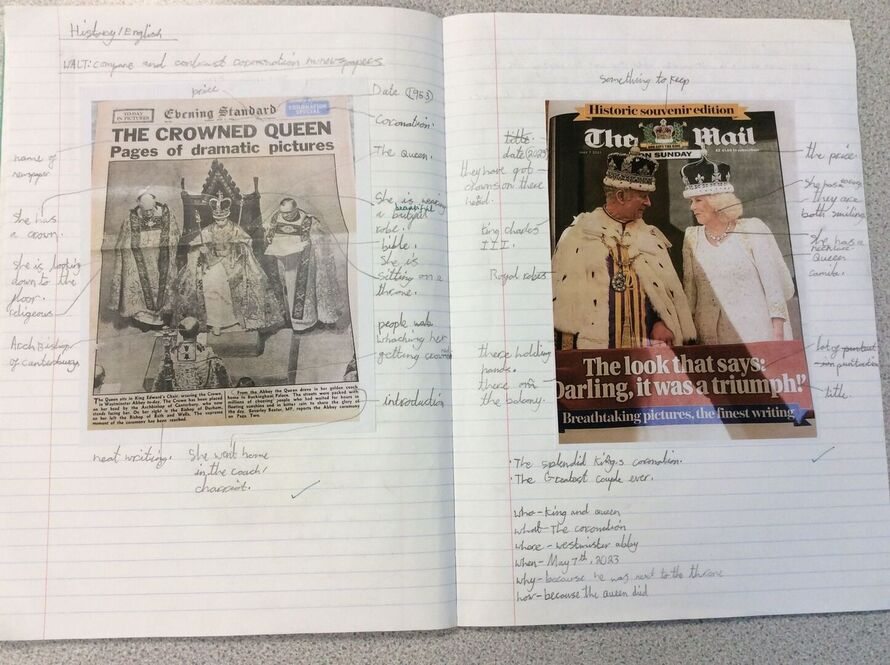 History/English
WALT: compare and contrast coronation newspapers
price
Date (1953)
Coronation.
The Queen.
name of
newspaper
TO-DAY
IN PICTURES
Evening Standard
CORONATION
SPECIAL
THE CROWNED QUEEN
Pages of dramatic pictures
She has
a crown.
She is looking
down to the
floor.
religeous
Arch Bishop
of cantenburg
She is wearing
beautiful
a
robe.
bible.
She is
sitting on a
throne.
people
whaching her
getting crowned
introduction
The Queen sits in King Edward's Chair, wearing the Crown
in Westminster Abbey to-day. The Crown has been placed
on her head by the Archbishop of Canterbury, who now
stands facing her. On her right is the Bishop of Durham,
on her left the Bishop of Bath and Wells. The supreme
moment of the ceremony has been reached.
From the Abbey the Queen drove in her golden coach
home to Buckingham Palace. The streets were packed with
millions of cheering people who had waited for hours in
bitter rain to share the glory of
the day. Beverley Baxter, MP, reports the Abbey ceremony
on Page Two.
neat writing.
She went home
in the coach/
charriot.
something to keep
Historic souvenir edition
The Mail
ON SUNDAY
MAY 7 2023
title
date (2023)
they have got
crowns on there
head.
King Charles
III.
Royal robes
there holding
hands.
there on
the balcony.
the price.
She has
they are
both smiling
She has a
necklace
Queen
camila.
lot of
punctuation
title.
The look that says:
Darling, it was a triumph!'
Breathtaking pictures, the finest writing
· The splendid King's coronation.
· The Greatest couple ever.
who - King and queen
what - The coronation
where - westminster abby
when - May 7th, 2023
why - because he was next to the throne
how - because the queen did